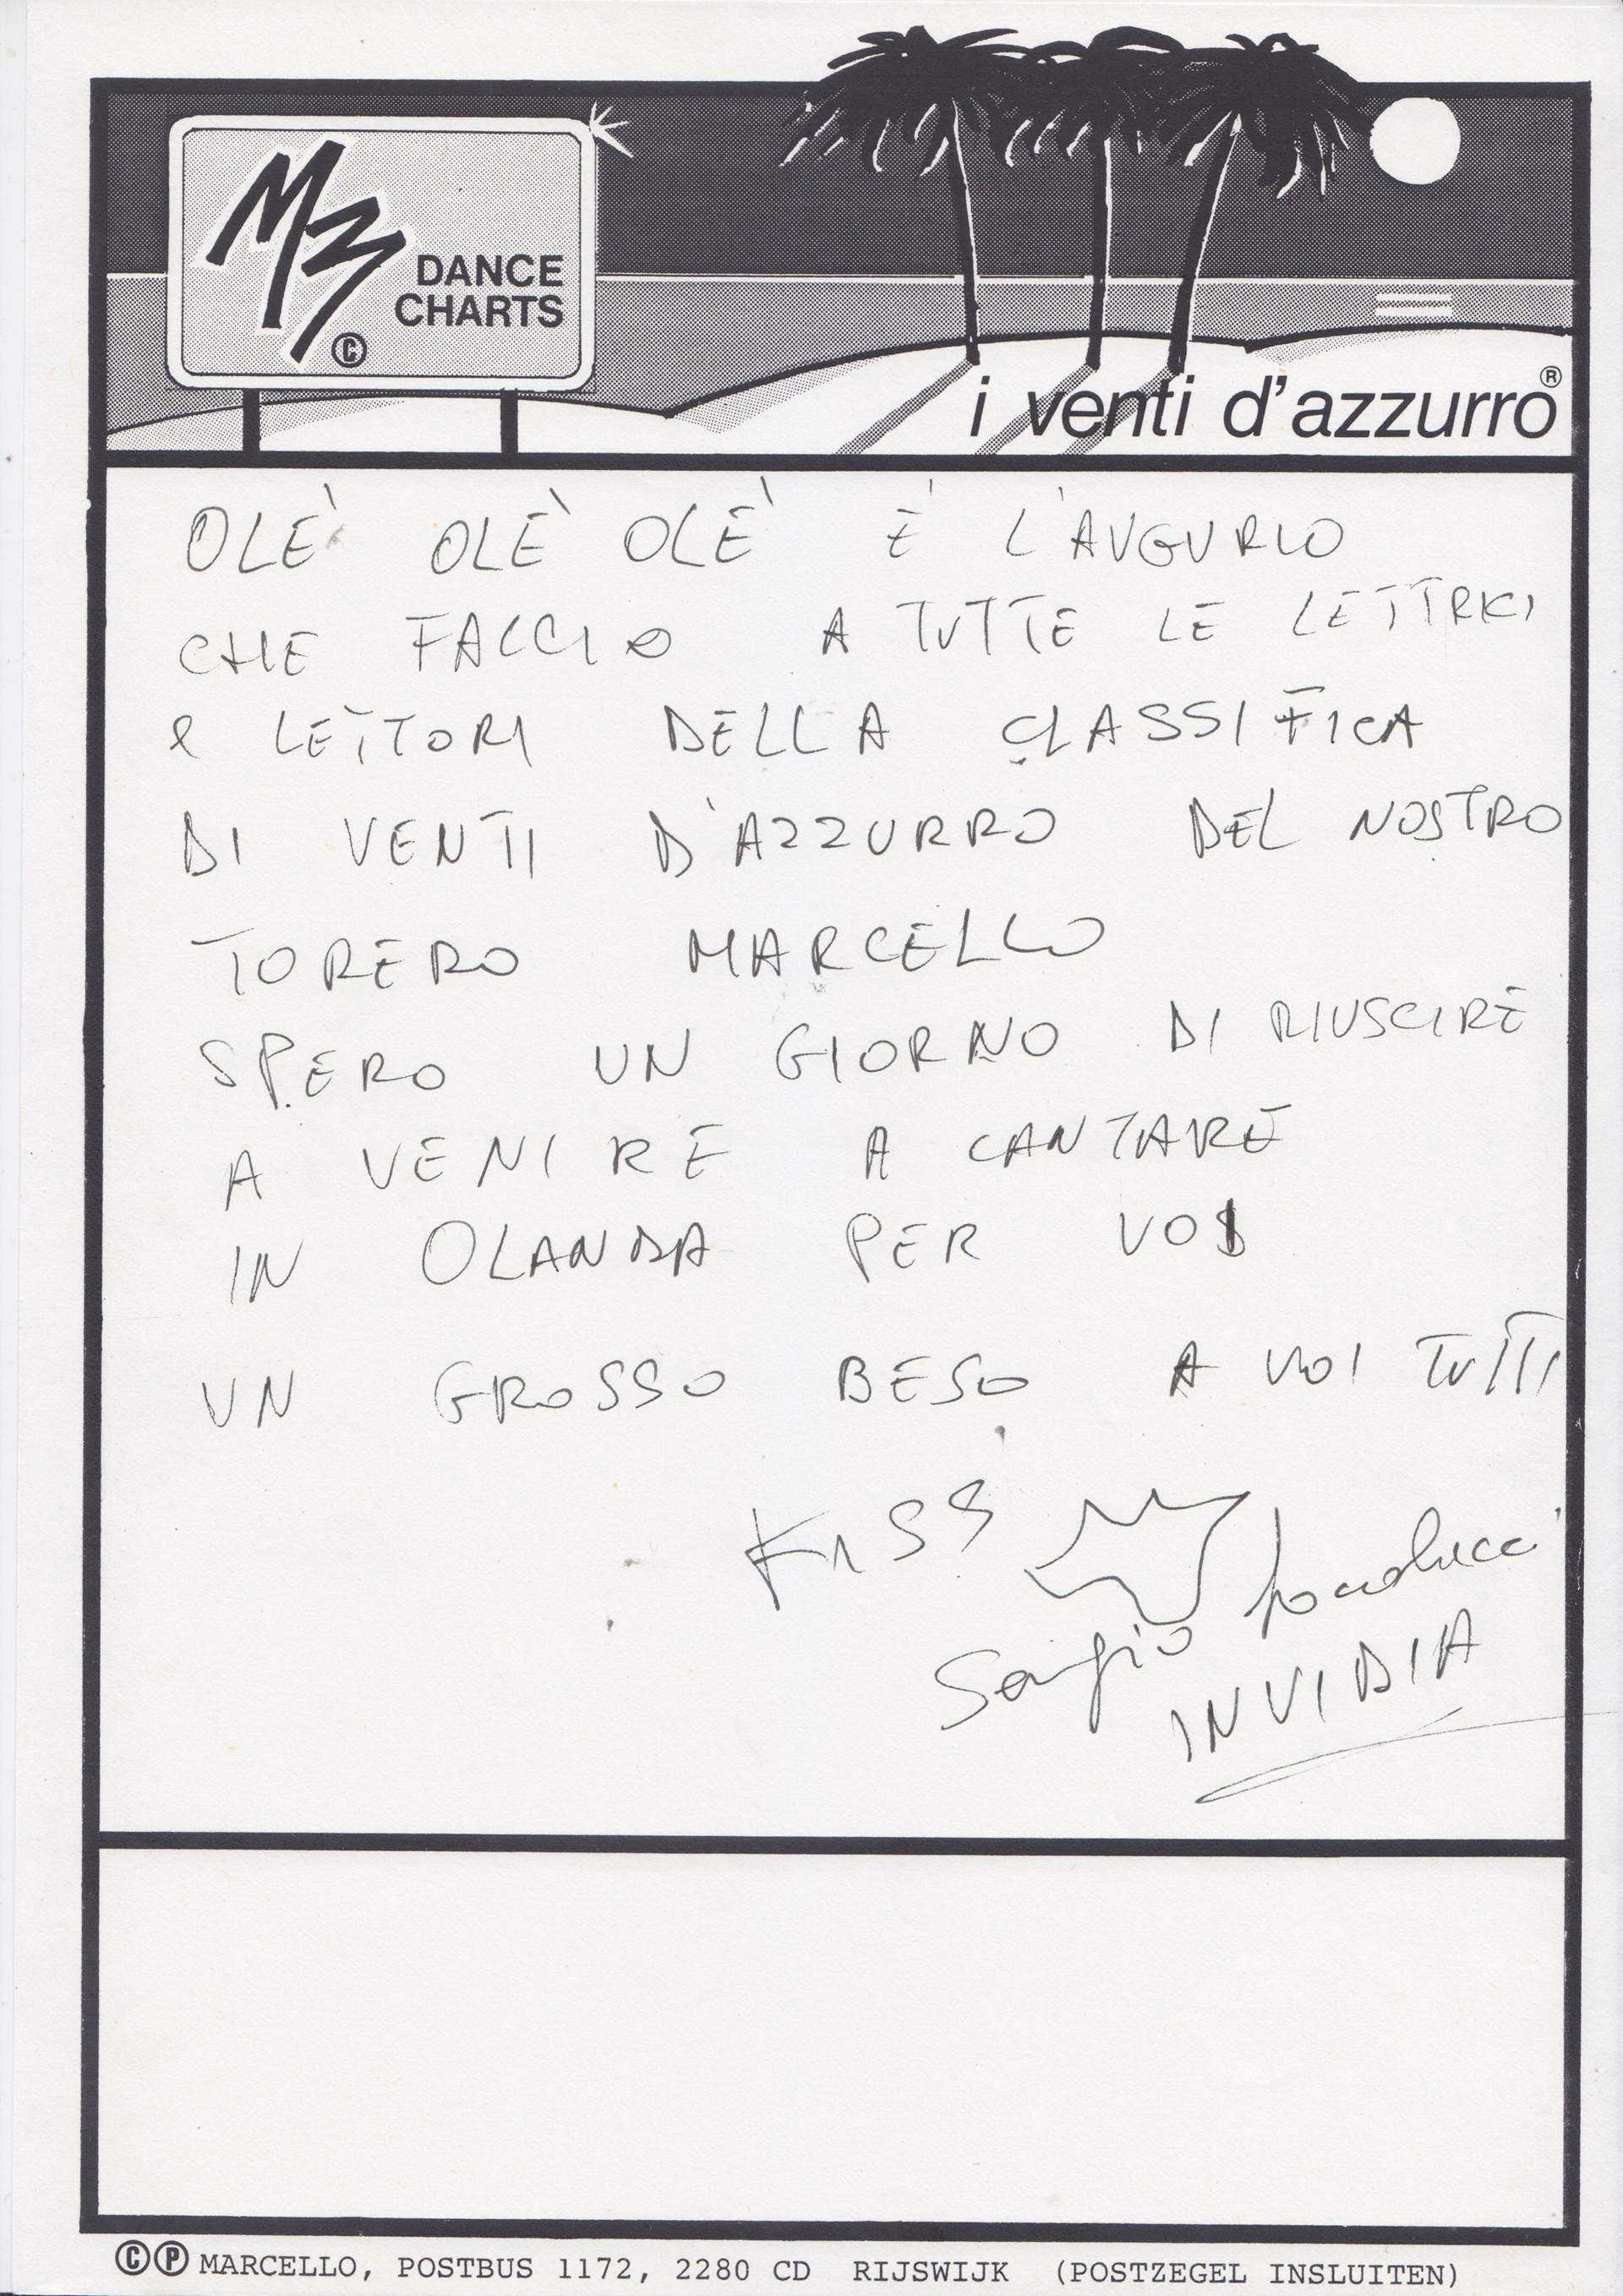 M3
DANCE
CHARTS
©
i venti d'azzurro®
OLÈ OLÈ OLÈ È L'AUGURIO
CHE FACCIO A TUTTE LE LETTRICI
e LETTORI DELLA CLASSIFICA
DI VENTI D'AZZURRO DEL NOSTRO
TORERO MARCELLO
SPERO UN GIORNO DI RIUSCIRE
A VENIRE A CANTARE
IN OLANDA PER VOI
UN GROSSO BESO A VOI TUTTI
KISS
Sergio
INVIDIA
©Ⓟ MARCELLO, POSTBUS 1172, 2280 CD RIJSWIJK (POSTZEGEL INSLUITEN)